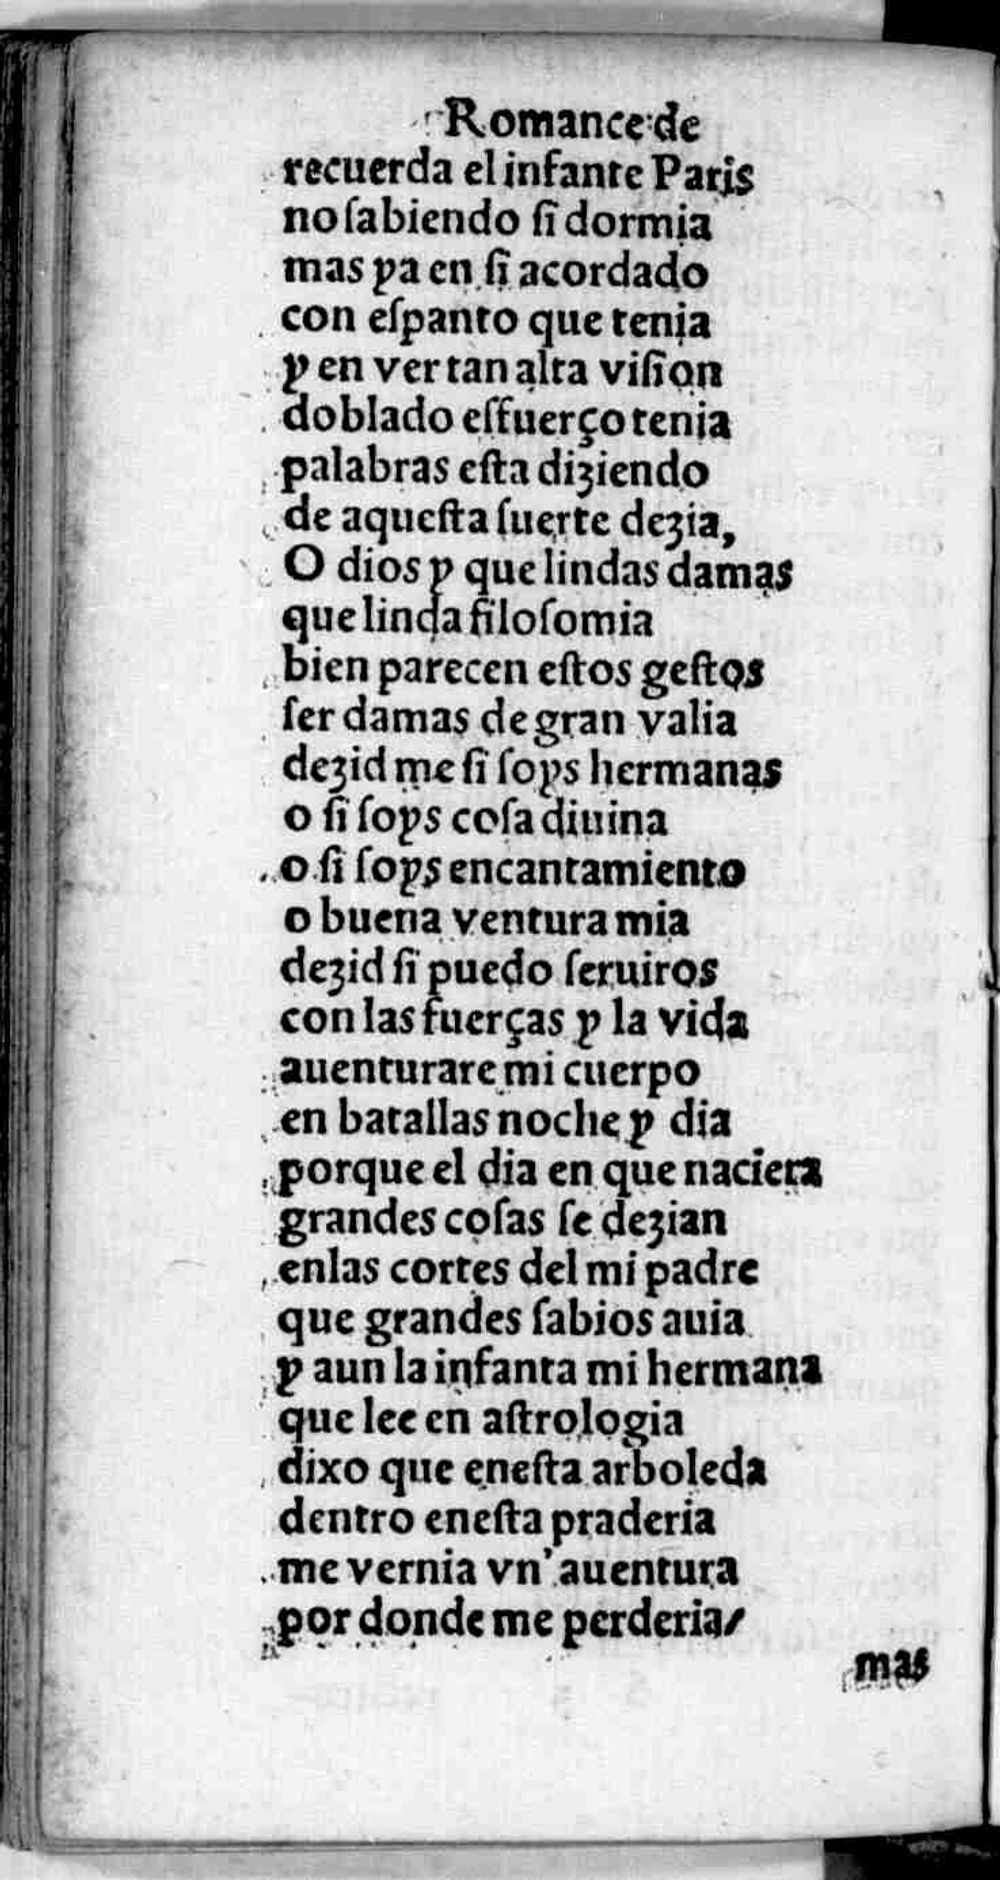 Romance de
recuerda el infante Paris
no ſabiendo ſi dormia
mas ya en ſi acordado
con eſpanto que tenia
y en ver tan alta viſion
doblado eſfuerço tenia
palabras eſta diziendo
de aqueſta ſuerte dezia,
O dios y que lindas damas
que linda filoſomia
bien parecen eſtos geſtos
ſer damas de gran valia
dezid me ſi ſoys hermanas
o ſi ſoys coſa diuina
o ſi ſoys encantamiento
o buena ventura mia
dezid ſi puedo ſeruiros
con las fuerças y la vida
auenturare mi cuerpo
en batallas noche y dia
porque el dia en que naciera
grandes coſas ſe dezian
enlas cortes del mi padre
que grandes ſabios auia
y aun la infanta mi hermana
que lee en aſtrologia
dixo que eneſta arboleda
dentro eneſta praderia
me vernia vn' auentura
por donde me perderia/
mas